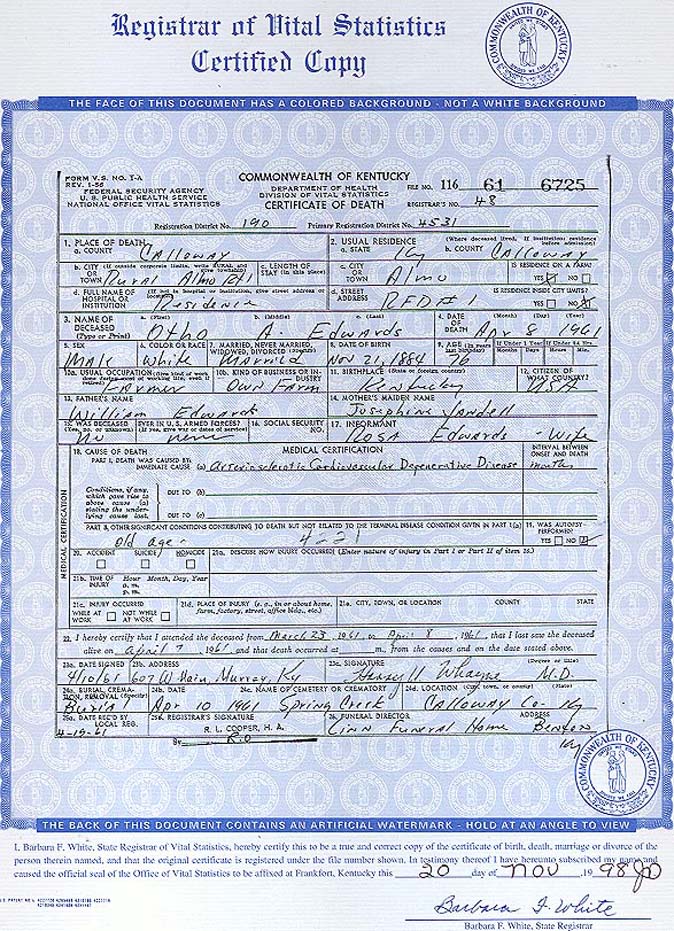 Registrar of Vital Statistics
Certified Copy
COMMONWEALTH OF KENTUCKY
THE FACE OF THIS DOCUMENT HAS A COLORED BACKGROUND - NOT A WHITE BACKGROUND
FORM V.S. NO. 1-A
REV. 1-56
FEDERAL SECURITY AGENCY
U. S. PUBLIC HEALTH SERVICE
NATIONAL OFFICE VITAL STATISTICS
COMMONWEALTH OF KENTUCKY
DEPARTMENT OF HEALTH
DIVISION OF VITAL STATISTICS
CERTIFICATE OF DEATH
FILE NO. 116 61 6725
REGISTRAR'S NO. 48
Registration District No. 190 Primary Registration District No. 4531
1. PLACE OF DEATH
a. COUNTY Calloway
2. USUAL RESIDENCE (Where deceased lived. If institution: residence before admission)
a. STATE Ky b. COUNTY Calloway
b. CITY (If outside corporate limits, write RURAL and give township) OR TOWN Rural Almo R#1
c. LENGTH OF STAY (in this place)
c. CITY OR TOWN Almo
IS RESIDENCE ON A FARM?
YES NO
d. FULL NAME OF (If not in hospital or institution, give street address or location) HOSPITAL OR INSTITUTION Residence
d. STREET ADDRESS RFD # 1
IS RESIDENCE INSIDE CITY LIMITS?
YES NO
3. NAME OF DECEASED (Type or Print) a. (First) b. (Middle) c. (Last)
Otho A. Edwards
4. DATE OF DEATH (Month) (Day) (Year)
Apr 8 1961
5. SEX Male
6. COLOR OR RACE White
7. MARRIED, NEVER MARRIED, WIDOWED, DIVORCED (Specify) Married
8. DATE OF BIRTH Nov 21, 1884
9. AGE (In years last birthday) 76
If Under 1 Year Months Days
If Under 24 Hrs. Hours Min.
10a. USUAL OCCUPATION (Give kind of work done during most of working life, even if retired) Farmer
10b. KIND OF BUSINESS OR INDUSTRY Own Farm
11. BIRTHPLACE (State or foreign country) Kentucky
12. CITIZEN OF WHAT COUNTRY? USA
13. FATHER'S NAME
William Edwards
14. MOTHER'S MAIDEN NAME
Josephine Yandell
15. WAS DECEASED EVER IN U.S. ARMED FORCES? (Yes, no, or unknown) (If yes, give war or dates of service)
No
16. SOCIAL SECURITY NO.
17. INFORMANT
Rosa Edwards - Wife
MEDICAL CERTIFICATION
18. CAUSE OF DEATH
PART I. DEATH WAS CAUSED BY:
IMMEDIATE CAUSE (a) Arteriosclerotic Cardiovascular Degenerative Disease
INTERVAL BETWEEN ONSET AND DEATH
months
Conditions, if any, which gave rise to above cause (a) stating the underlying cause last.
DUE TO (b)
DUE TO (c)
PART II. OTHER SIGNIFICANT CONDITIONS CONTRIBUTING TO DEATH BUT NOT RELATED TO THE TERMINAL DISEASE CONDITION GIVEN IN PART I.(a)
Old age - 4-221
19. WAS AUTOPSY PERFORMED?
YES NO
20. ACCIDENT SUICIDE HOMICIDE
21a. DESCRIBE HOW INJURY OCCURRED (Enter nature of injury in Part I or Part II of item 18.)
21b. TIME OF INJURY Hour Month, Day, Year
a. m.
p. m.
21c. INJURY OCCURRED
WHILE AT WORK NOT WHILE AT WORK
21d. PLACE OF INJURY (e. g., in or about home, farm, factory, street, office bldg., etc.)
21e. CITY, TOWN, OR LOCATION COUNTY STATE
22. I hereby certify that I attended the deceased from March 23, 1961, to Apr. 8, 1961, that I last saw the deceased
alive on April 7, 1961 and that death occurred at m., from the causes and on the date stated above.
23a. DATE SIGNED 4/10/61
23b. ADDRESS 607 W Main, Murray, Ky
23c. SIGNATURE (Degree or title)
Harry U Whayne M.D.
24a. BURIAL, CREMATION, REMOVAL (Specify) Burial
24b. DATE Apr 10 1961
24c. NAME OF CEMETERY OR CREMATORY Spring Creek
24d. LOCATION (City, town, or county) (State)
Calloway Co- Ky
25a. DATE REC'D BY LOCAL REG. 4-19-61
25b. REGISTRAR'S SIGNATURE
R. L. COOPER, H. A.
By R.O
26. FUNERAL DIRECTOR ADDRESS
Linn Funeral Home Benton Ky
MEDICAL CERTIFICATION
COMMONWEALTH OF KENTUCKY
THE BACK OF THIS DOCUMENT CONTAINS AN ARTIFICIAL WATERMARK - HOLD AT AN ANGLE TO VIEW
I, Barbara F. White, State Registrar of Vital Statistics, hereby certify this to be a true and correct copy of the certificate of birth, death, marriage or divorce of the
person therein named, and that the original certificate is registered under the file number shown. In testimony thereof I have hereunto subscribed my name and
caused the official seal of the Office of Vital Statistics to be affixed at Frankfort, Kentucky this 20 day of Nov, 19 98
Barbara F. White
Barbara F. White, State Registrar